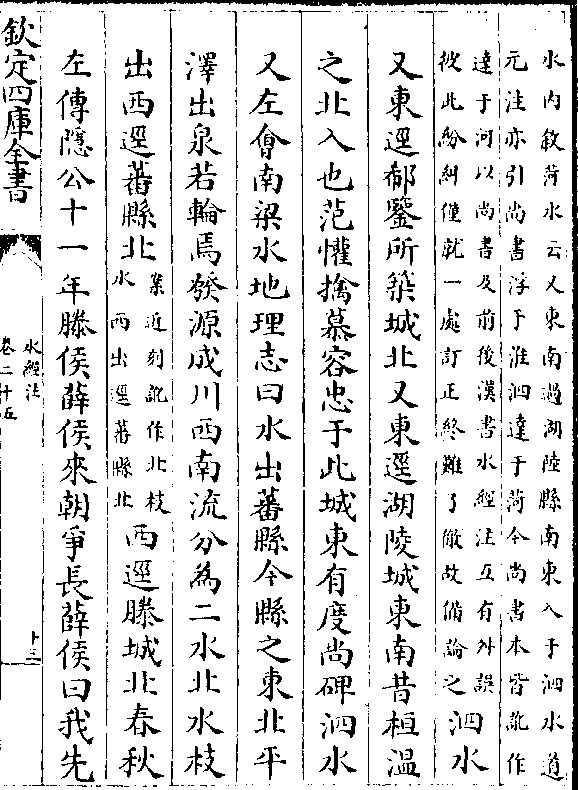 水内敘菏水云又東南過湖陸縣南東入于泗水道
元注亦引尚書浮于淮泗達于菏今尚書本皆訛作
達于河以尚書及前後漢書水經注互有舛誤
彼此紛糾僅就一處訂正終難了徹故備論之泗水
又東逕郗鑒所築城北又東逕湖陵城東南昔桓温
之北入也范懽擒慕容忠于此城東有度尚碑泗水
又左會南梁水地理志曰水出蕃縣今縣之東北平
澤出泉若輪焉發源成川西南流分為二水北水枝
出西逕蕃縣北
案近刻訛作北枝
水西出逕蕃縣北
西逕滕城北春秋
左傳隱公十一年滕侯薛侯來朝爭長薛侯曰我先
欽定四庫全書
水經注
卷二十五
十三